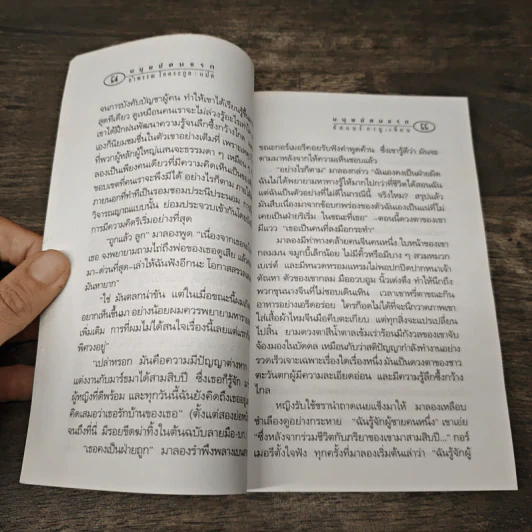 ๕๔
มนุษย์คนแรก
อำพรรณ โอตระกูล : แปล
จนการบังคับบัญชาผู้คน ทำให้เขาได้เรียนรู้
สุดทีเดียว ดูเหมือนคนเราจะไม่ล่วงรู้อะไร
เขาได้ฝึกฝนพัฒนาความรู้จนลึกซึ้งกว้างไกล
เองก็นิยมชมชื่นในตัวเขาอย่างเต็มที่ เพราะ
ที่พวกผู้หลักผู้ใหญ่แสนจะธรรมดา ๆ เหมือน
ลองเป็นเพียงคนเดียวที่มีความคิดเห็นเป็นของ
ขอบเขตที่คนเราจะพึงมีได้ อย่างไรก็ตาม ภายใต้
ภายนอกที่ทำทีเป็นรอมชอมประนีประนอม
วิจารณญาณแบบนั้น ย่อมประจวบเข้ากัน
การมีความคิดริเริ่มอย่างที่สุด
"ถูกแล้ว ลูก" มาลองพูด "เนื่องจาก
เธอ จงพยายามถามไถ่ถึงพ่อของเธอดูเสีย แล้ว
มา-ด่วนที่สุด-เล่าให้ฉันฟังอีกนะ โอกาสสรวล
มันหายาก"
"ใช่ มันตลกน่าขัน แต่ในเมื่อขณะนี้ผม
อยากเห็นขึ้นมา อย่างน้อยผมควรพยายาม
เพิ่มเติม การที่ผมไม่ได้สนใจเรื่องนี้เลยแต่แรก
พิศวงอยู่"
"เปล่าหรอก มันคือความมีปัญญาต่างหาก
แต่งงานกับมาร์ธมาได้สามสิบปี ซึ่งเธอก็รู้จัก
ผู้หญิงที่ดีพร้อม และทุกวันนี้ฉันยังคิดถึงเธอ
คิดเสมอว่าเธอรักบ้านของเธอ" (ตั้งแต่สองย่อหน้า
จนถึงที่นี่ มีรอยขีดฆ่าทิ้งในต้นฉบับลายมือ-บ.ก.)
"เธอคงเป็นฝ่ายถูก" มาลองรำพึงพลางเบน
มนุษย์คนแรก
อัลแบร์ กามู : เขียน
๕๕
ขณะกอร์เมอรีคอยรับฟังคำพูดค้าน ซึ่งเขารู้ดีว่า มันจะ
ตามมาหลังจากให้ความเห็นชอบแล้ว
"อย่างไรก็ตาม" มาลองกล่าว "ฉันเองคงเป็นฝ่ายผิด
ฉันไม่ได้พยายามหาทางรู้ให้มากไปกว่าที่ชีวิตได้สอนฉัน
แต่ฉันเป็นตัวอย่างที่ไม่ดีในกรณีนี้ จริงไหม? สรุปแล้ว
มันสืบเนื่องมาจากข้อบกพร่องของตัวฉันเองเป็นแน่ที่ไม่
เคยเป็นฝ่ายริเริ่ม ในขณะที่เธอ" –ตอนนี้ดวงตาของเขา
มีแวว "เธอเป็นคนที่ลงมือกระทำ"
มาลองมีท่าทางคล้ายคนจีนคนหนึ่ง ใบหน้าของเขา
กลมมน จมูกบี้เล็กน้อย ไม่มีคิ้วหรือมีบาง ๆ สวมหมวก
เบเร่ต์ และมีหนวดหรอมแหรมไม่พอปกปิดปากหนาเจ้า
ตัณหา ตัวของเขากลม มืออวบอูม นิ้วเต่งตึง ทำให้นึกถึง
พวกขุนนางจีนที่ไม่ชอบเดินเหิน เวลาเขาหรี่ตาขณะกิน
อาหารอย่างเอร็ดอร่อย ใครก็อดไม่ได้ที่จะนึกถึงภาพเขา
ใส่เสื้อผ้าไหมจีนมือคีบตะเกียบ แต่ทุกสิ่งจะแปรเปลี่ยน
ไปสิ้น ยามดวงตาสีน้ำตาลเข้มเร่าร้อนมีกังวลของเขาจับ
จ้องมองในบัดดล เหมือนกับว่าสติปัญญากำลังทำงานอย่าง
รวดเร็วเจาะเฉพาะเรื่องใดเรื่องหนึ่ง มันเป็นดวงตาของชาว
ตะวันตกผู้มีความละเอียดอ่อน และมีความรู้ลึกซึ้งกว้าง
ไกล
หญิงรับใช้ชรานำถาดเนยแข็งมาให้ มาลองเหลือบ
ชำเลืองดูอย่างกระหาย "ฉันรู้จักผู้ชายคนหนึ่ง" เขาเอ่ย
"ซึ่งหลังจากร่วมชีวิตกับภริยาของเขามาสามสิบปี..." กอร์
เมอรีตั้งใจฟัง ทุกครั้งที่มาลองเริ่มต้นเล่าว่า "ฉันรู้จักผู้